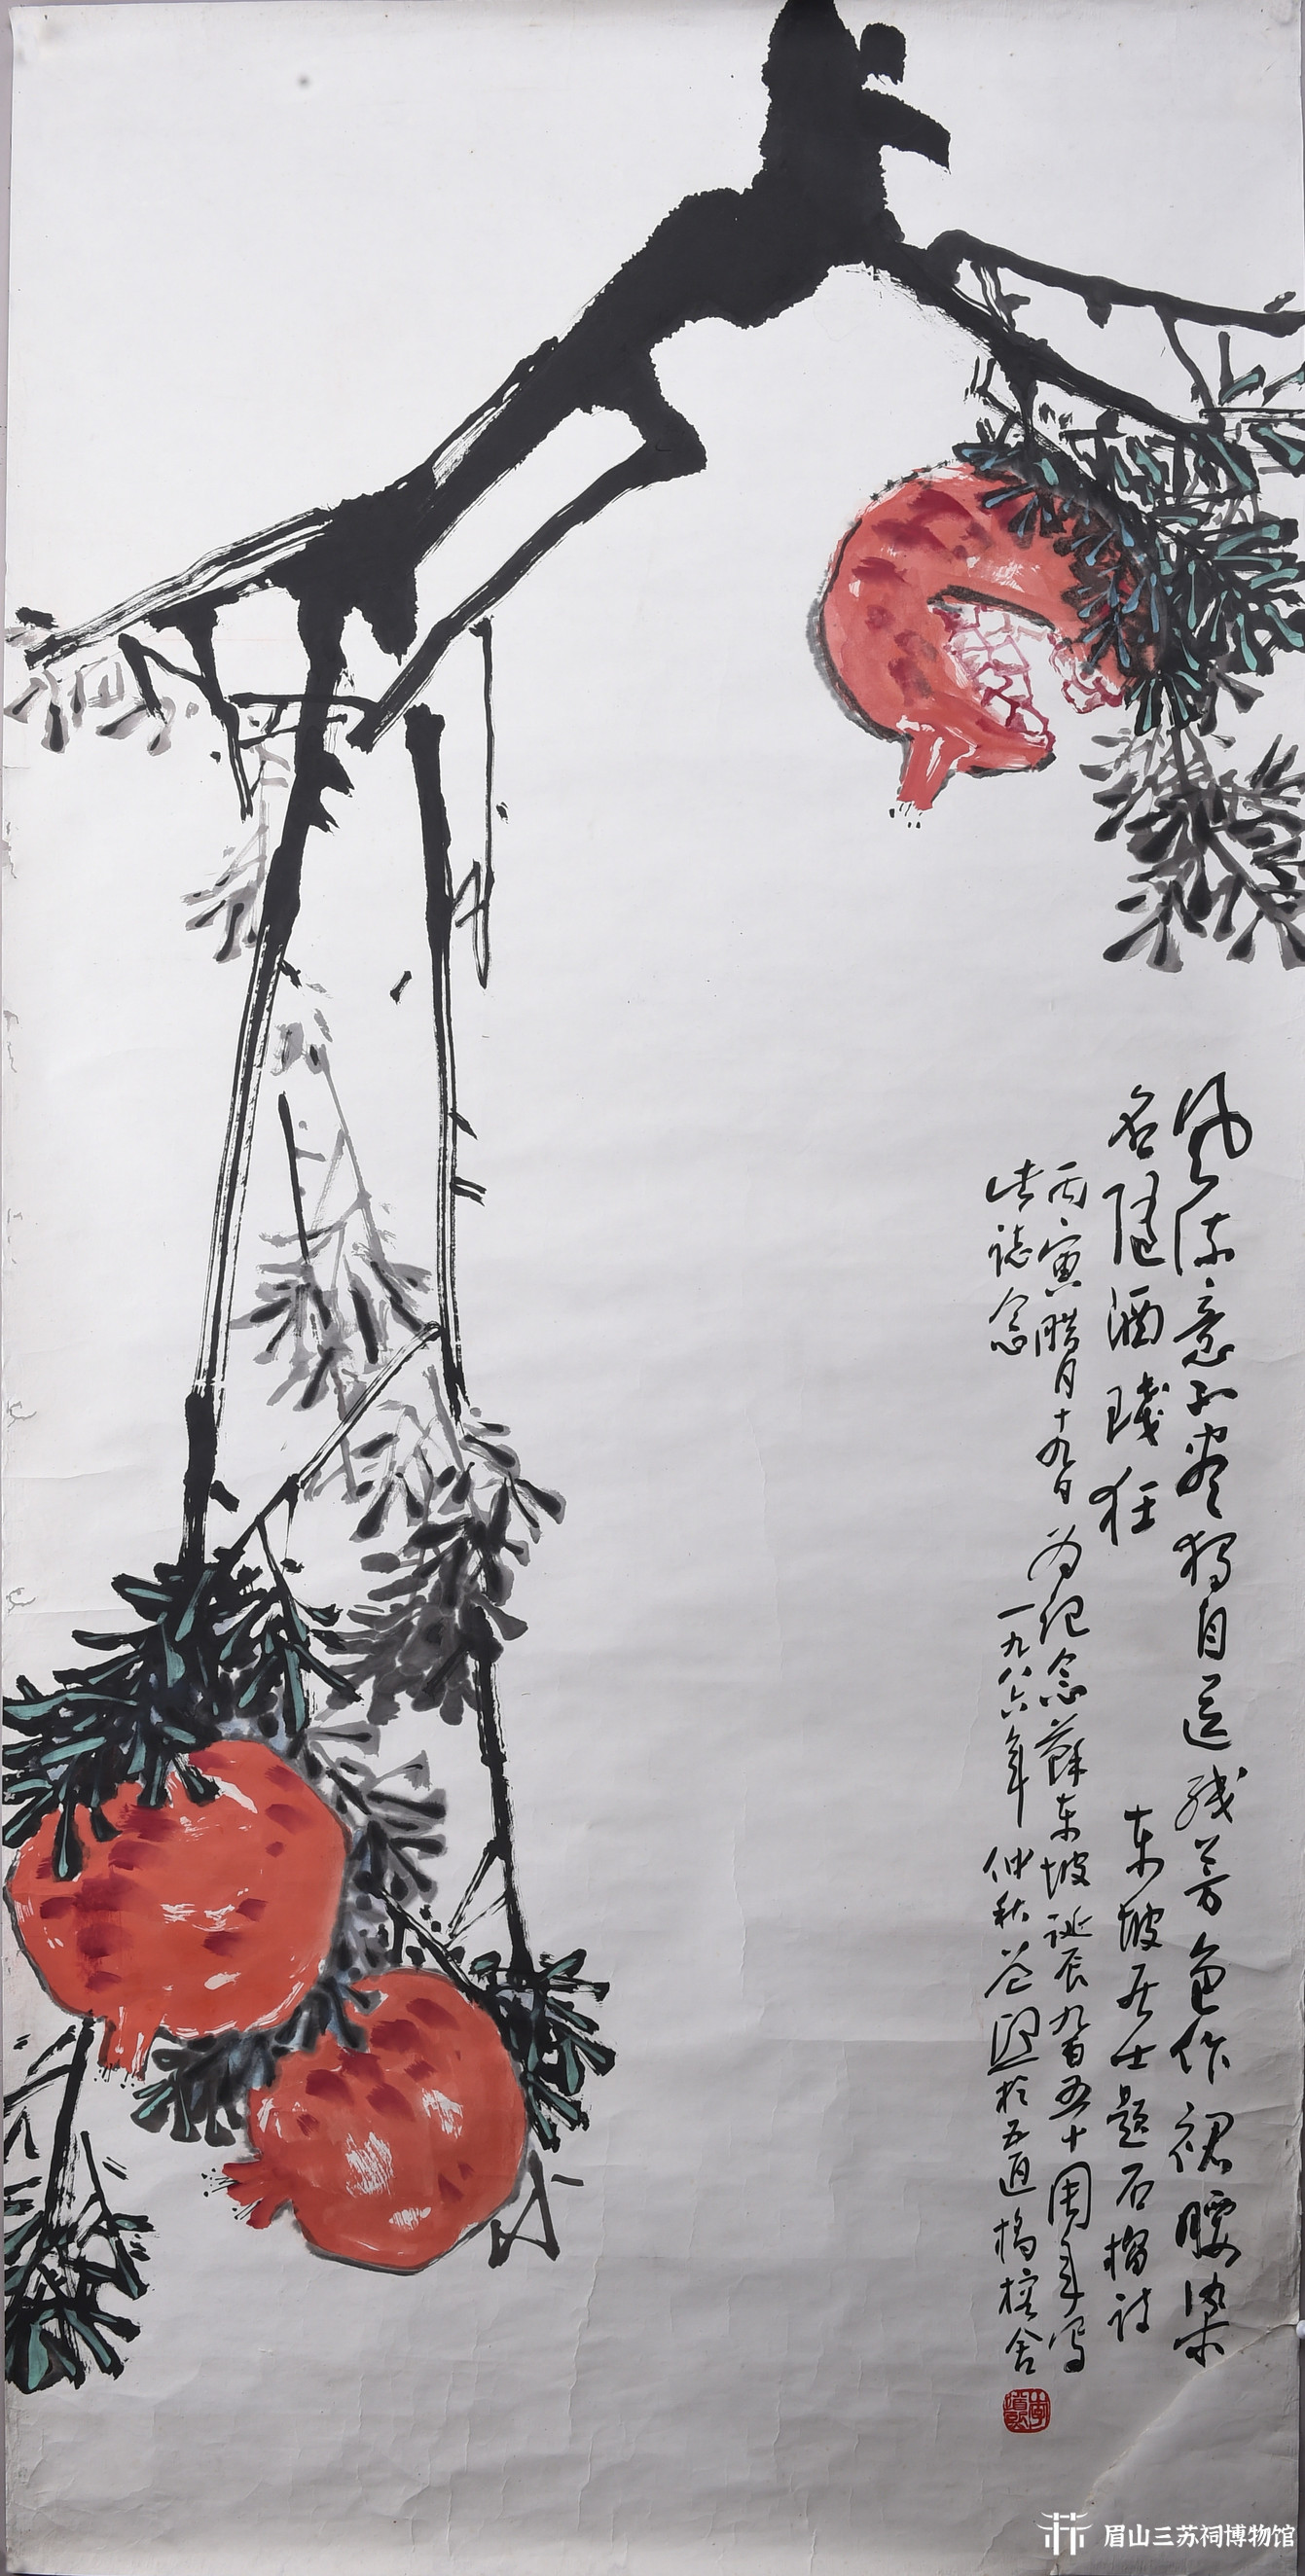 风流意不尽独自送残芳色作裙腰染
名随酒琖狂 东坡居士题石榴诗
丙寅腊月十九日为纪念蘇东坡诞辰九百五十周年写
此誌念 一九八六年仲秋道熙於五通桥榕舍
李道熙
眉山三苏祠博物馆